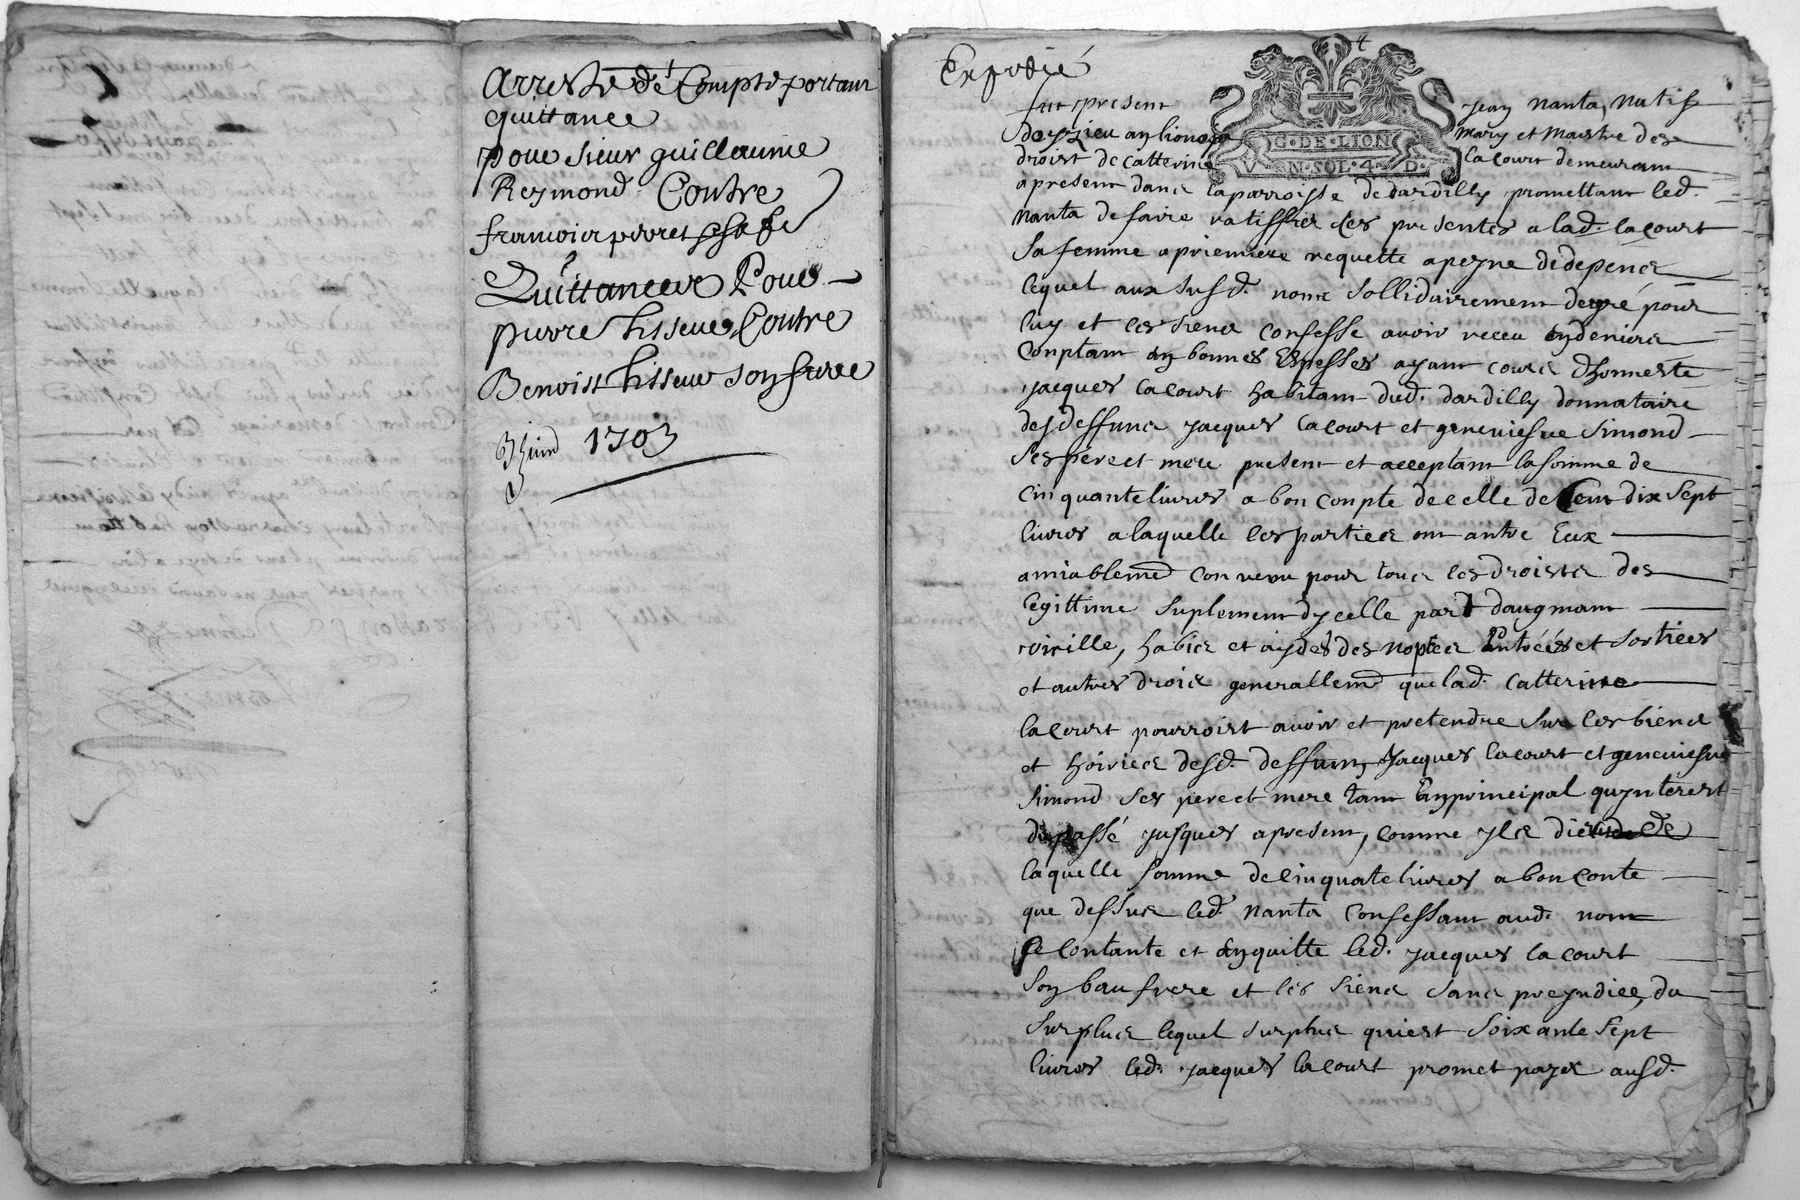 Arresté de Compte portant
quittance
pour sieur guillaume
Reymond Contre
francois pierres
Quittance Pour
pierre tisseur Contre
Benoist tisseur son frere
3 Juin 1703
Expedié
4
G·DE·LION
V N·SOL·4·D·
fut present Jean nanta, natif
doyzieu an lionois mary et maistre des
droist de catterine la court demeurant
apresent dans la parroisse de dardilly promettant led.
nanta de faire ratiffier ces presentes a lad. la court
sa femme a priemiere requette a peyne de depence
lequel aux susd. noms sollidairement de gré pour
luy et les siens confesse avoir receu en deniers
Conptant en bonnes Espesses ayant cours d'honneste
jacques la court habitant dud. dardilly donnataire
des deffuncs jacques la court et geneviefve simond
ses pere et mere present et acceptant la somme de
cinquante livres a bon conpte de celle de Cent dix sept
livres a laquelle les parties ont antre Eux
amiablemt convenu pour tous les droists des
legittime suplement dycelle part daugmant
virille, habis et des noptce Entréés et sorties
et autres drois generallemt que lad. catterine
la court pourroist avoir et pretendre sur les biens
et hoiries desd. deffunts Jacques la court et geneviefve
simond ses pere et mere tant En principal qu'ynterest
du passé jusques apresent, comme yls de
laquelle somme de cinquate livres a bon conte
que dessus led. nanta confessant aud. nom
se contante et en quitte led. jacques la court
son baufrere et les siens sans prejudice, du
surplus lequel surplus quiest soixante sept
livres led. jacques la court promet payer ausd.